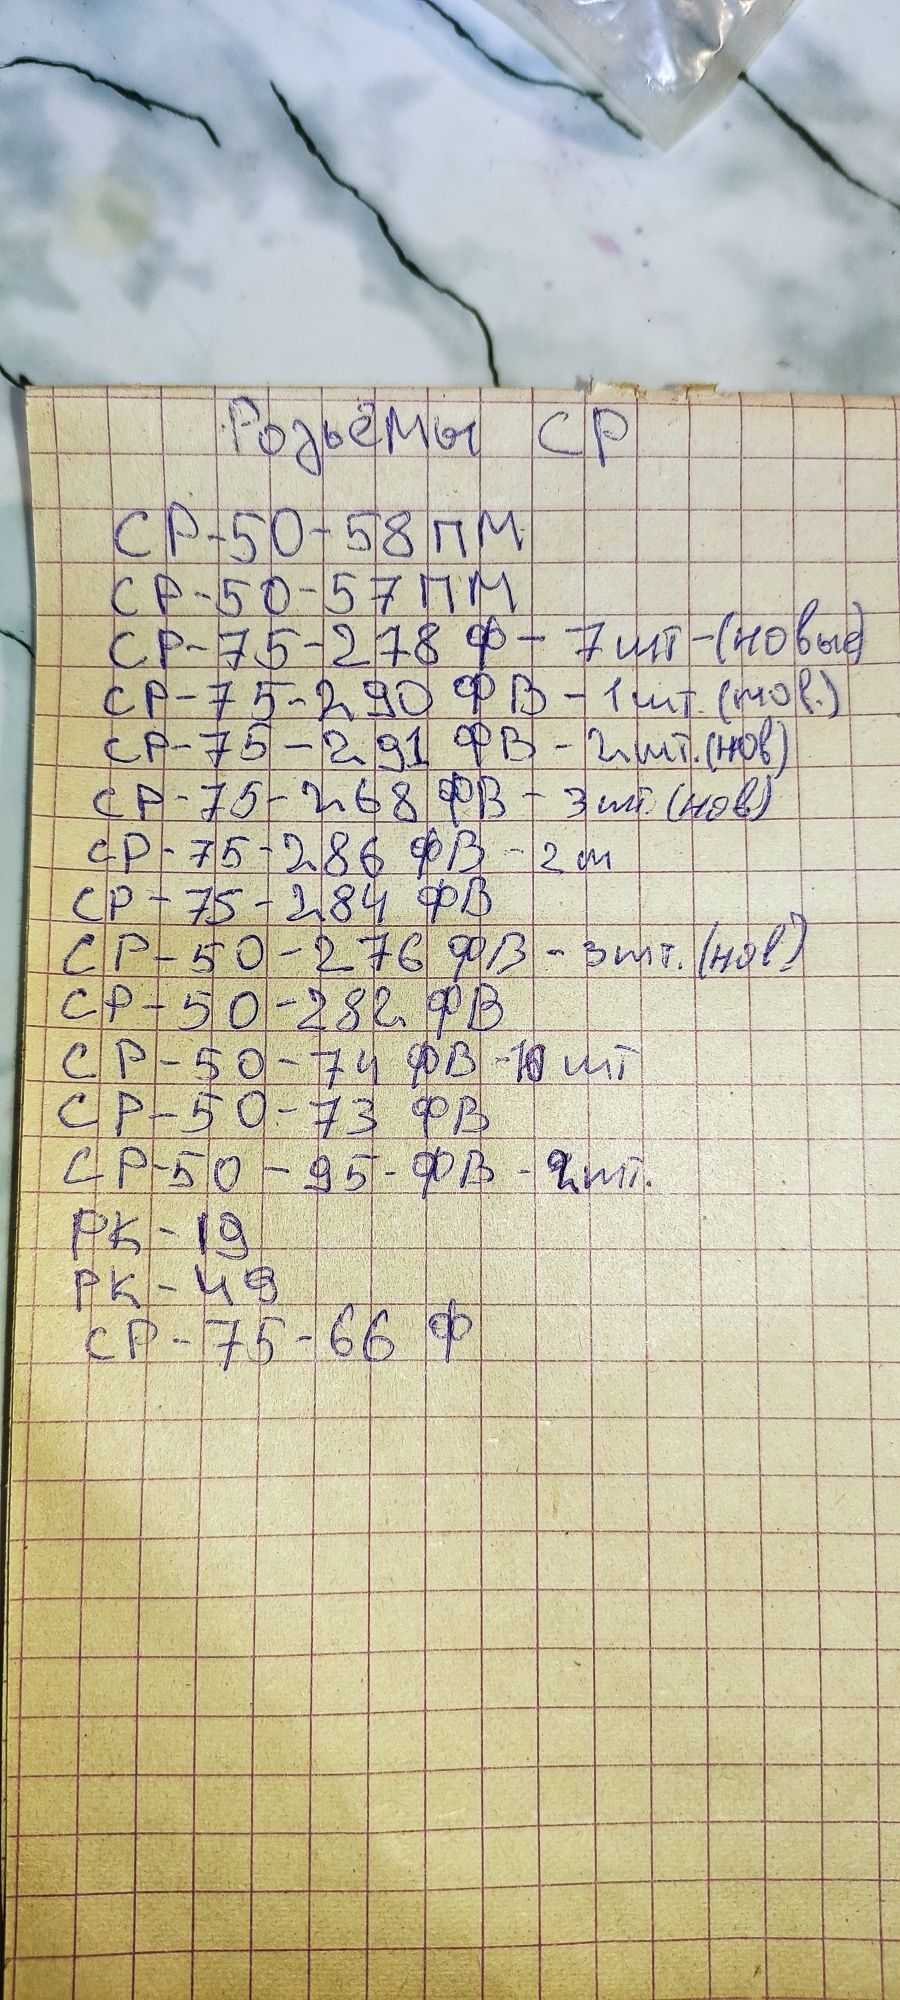 Розьёмы СР
СР-50-58 ПМ
СР-50-57 ПМ
СР-75-278 Ф - 7 шт - (новые)
СР-75-290 ФВ - 1 шт. (нов.)
СР-75-291 ФВ - 2 шт. (нов)
СР-75-268 ФВ - 3 шт. (нов)
СР-75-286 ФВ - 2 ш
СР-75-284 ФВ
СР-50-276 ФВ - 3 шт. (нов)
СР-50-282 ФВ
СР-50-74 ФВ - 10 шт
СР-50-73 ФВ
СР-50-95-ФВ - 2 шт.
РК-19
РК-49
СР-75-66 Ф